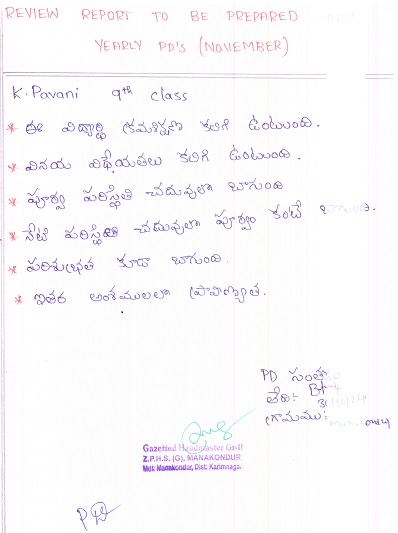 REVIEW REPORT TO BE PREPARED
YEARLY PD'S (NOVEMBER)
K. Pavani 9th class
* ఈ విద్యార్థి క్రమశిక్షణ కలిగి ఉంటుంది.
* వినయ విధేయతలు కలిగి ఉంటుంది.
* పూర్వ పరిస్థితి చదువులో బాగుంది
* నేటి పరిస్థితి చదువులో పూర్వం కంటే బాగుంది.
* పరిశుభ్రత కూడా బాగుంది.
* ఇతర అంశములలో ప్రావిణ్యత.
PD సంతకం
తేది:
గ్రామము:
Gazetted Headmaster Gr-II
Z.P.H.S. (G), MANAKONDUR
Mdl: Manakondur, Dist: Karimnagar.